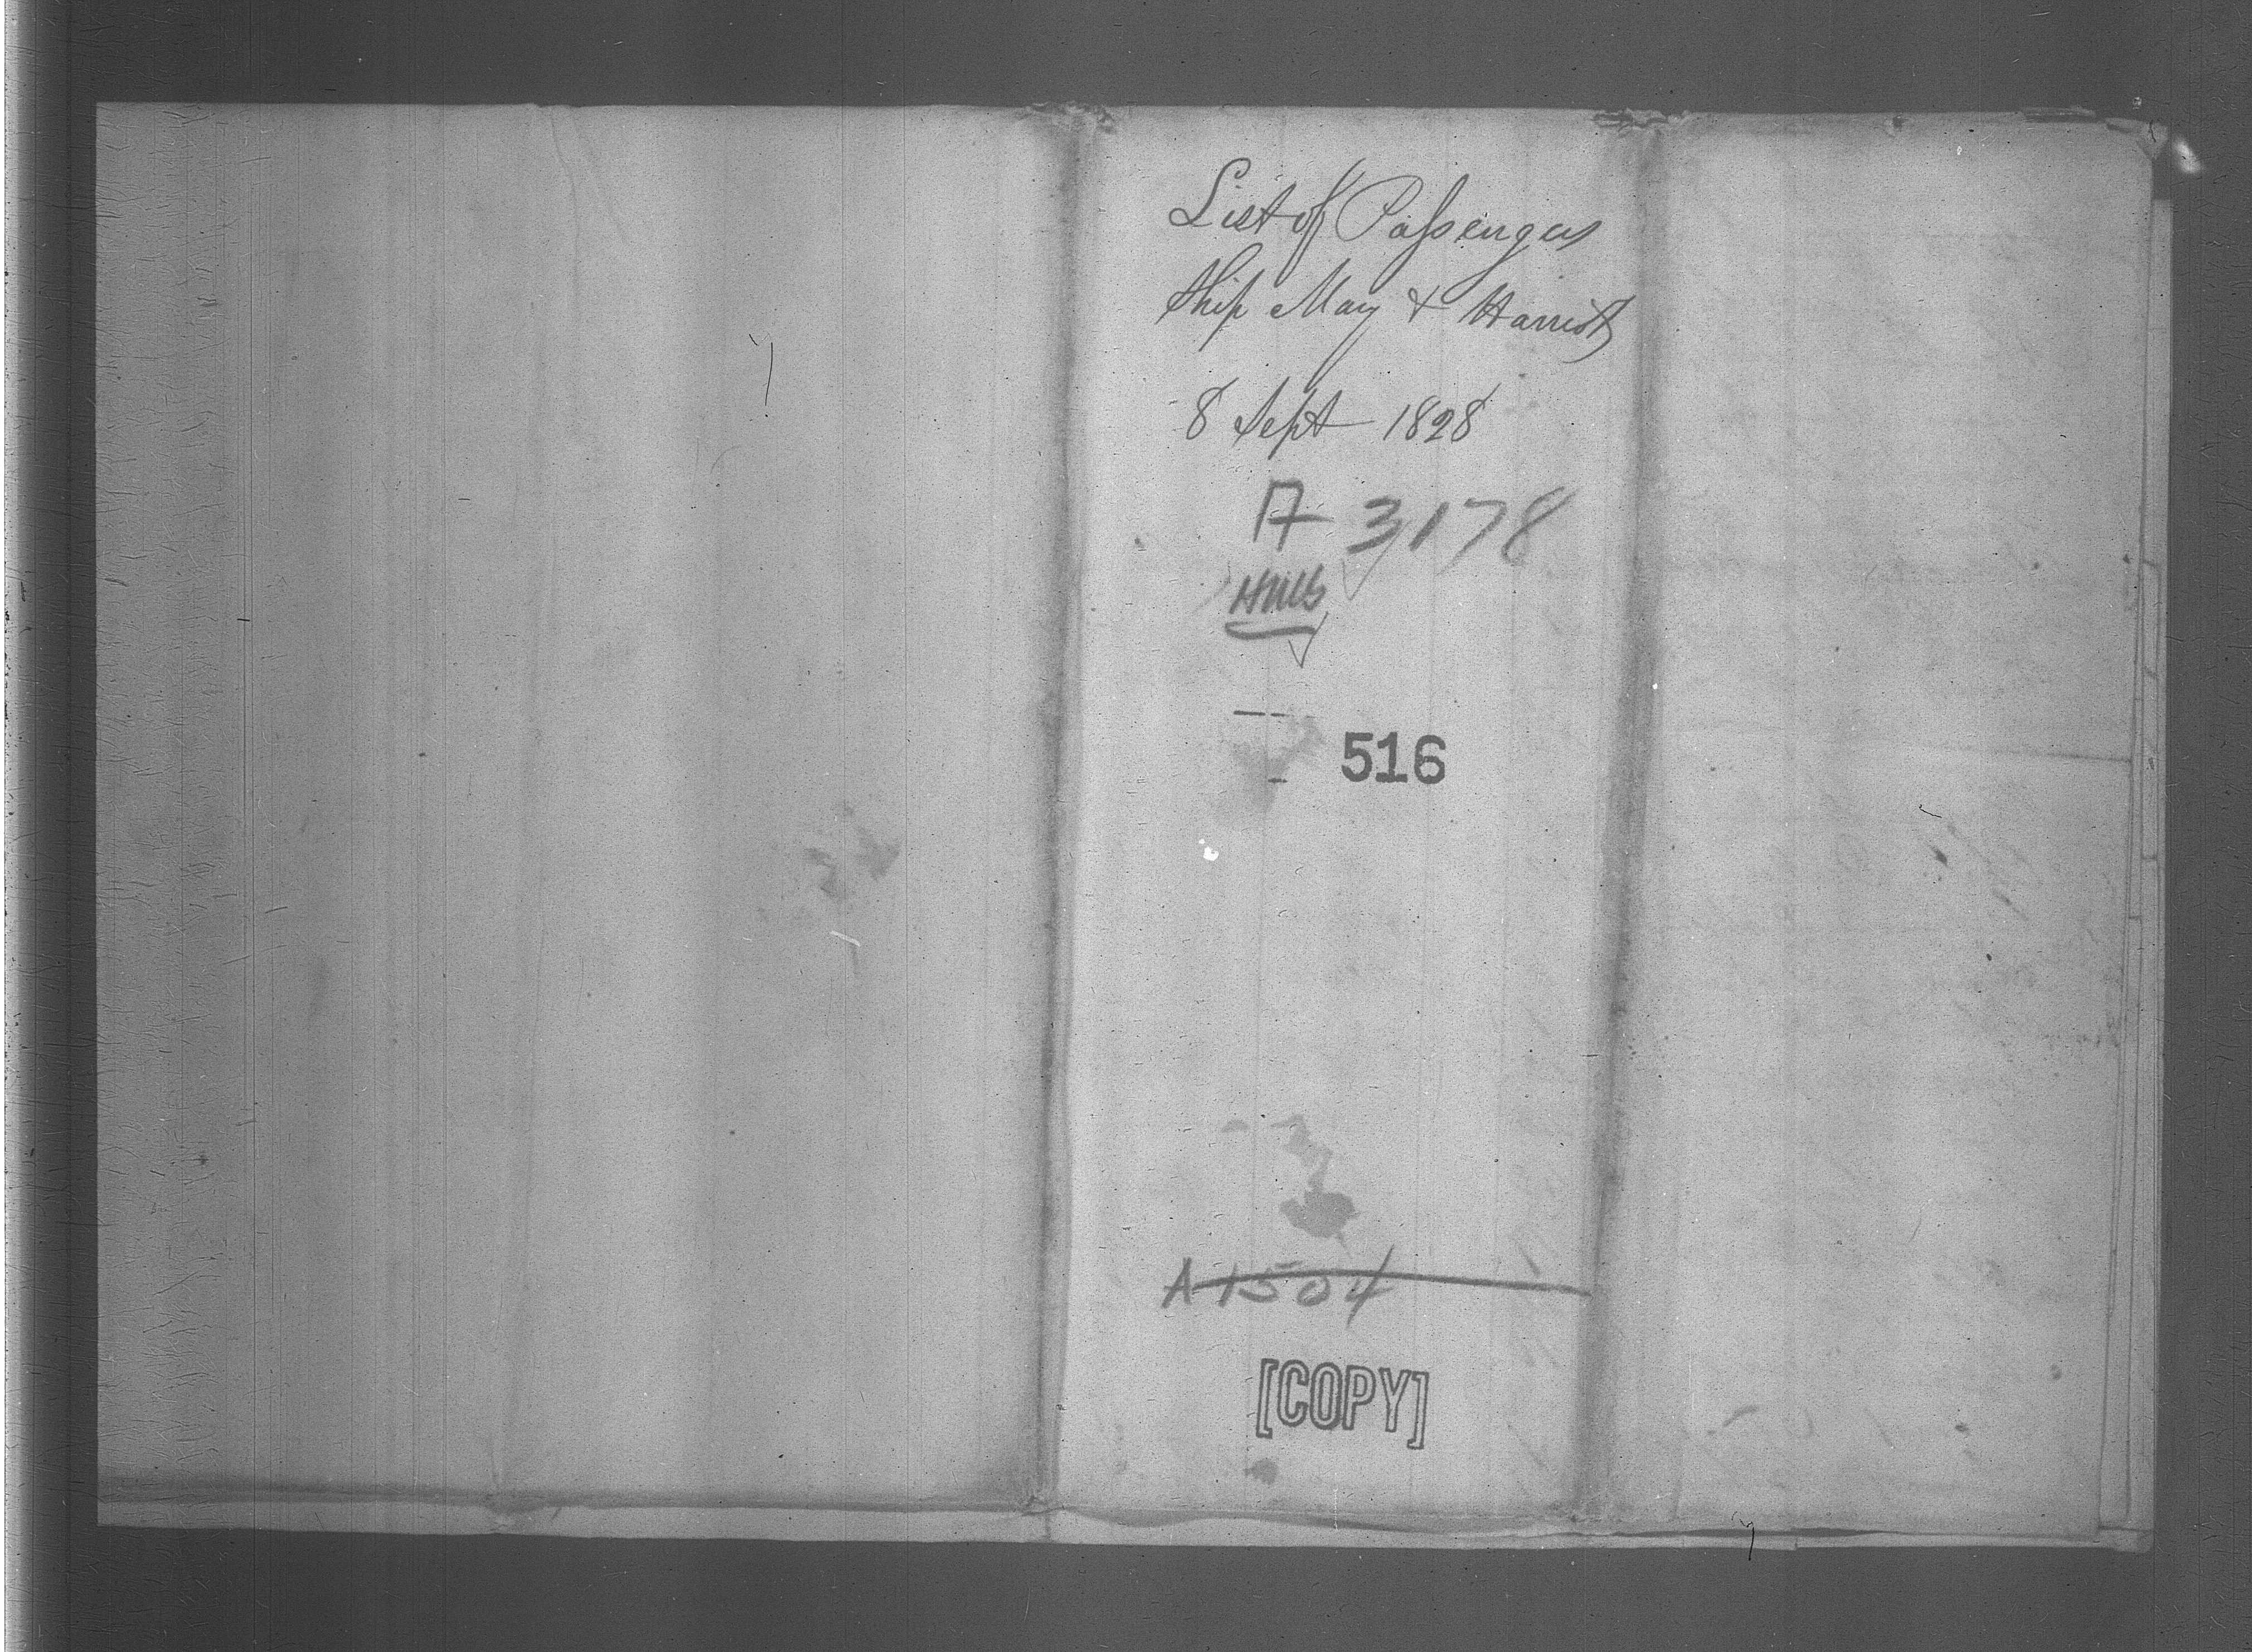 List of Passengers
Ship Mary & Harriot
8 Sept 1828
A 3178
516
A 1504
[COPY]